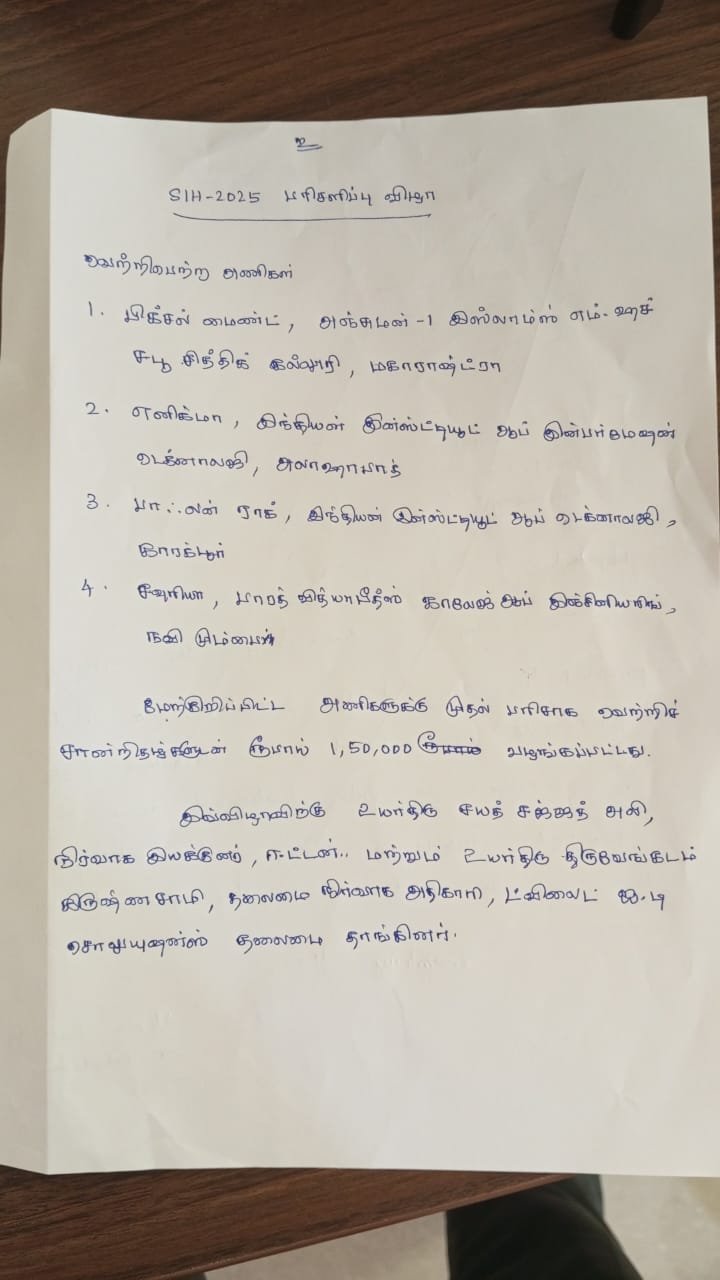 2
SIH-2025 பரிசளிப்பு விழா
வெற்றிபெற்ற அணிகள்
1. பிக்சல் மைண்ட், அஞ்சுமன்-1 இஸ்லாம்ஸ் எம்.ஹச்
சபூ சித்திக் கல்லூரி, மகாராஷ்ட்ரா
2. எனிக்மா, இந்தியன் இன்ஸ்ட்டியூட் ஆப் இன்பர்மேஷன்
டெக்னாலஜி, அலாஹாபாத்
3. பாஃலன் ராக், இந்தியன் இன்ஸ்ட்டியூட் ஆப் டெக்னாலஜி,
காரக்பூர்
4. பாரத் வித்யாபீதீஸ் காலேஜ் ஆப் இன்சினியரிங்,
நவி மும்பை
மேற்குறிப்பிட்ட அணிகளுக்கு முதல் பரிசாக வெற்றிச்
சான்றிதழ்களுடன் ரூபாய் 1,50,000 வழங்கப்பட்டது.
இவ்விழாவிற்கு உயர்திரு சயத் சஜ்ஜத் அலி,
நிர்வாக இயக்குனர், ஈட்டன்.. மற்றும் உயர்திரு திருவேங்கடம்
கிருஷ்ணசாமி, தலைமை நிர்வாக அதிகாரி, ட்விலைட் ஐ.டி
சொலுயுஷன்ஸ் தலைமை தாங்கினர்.